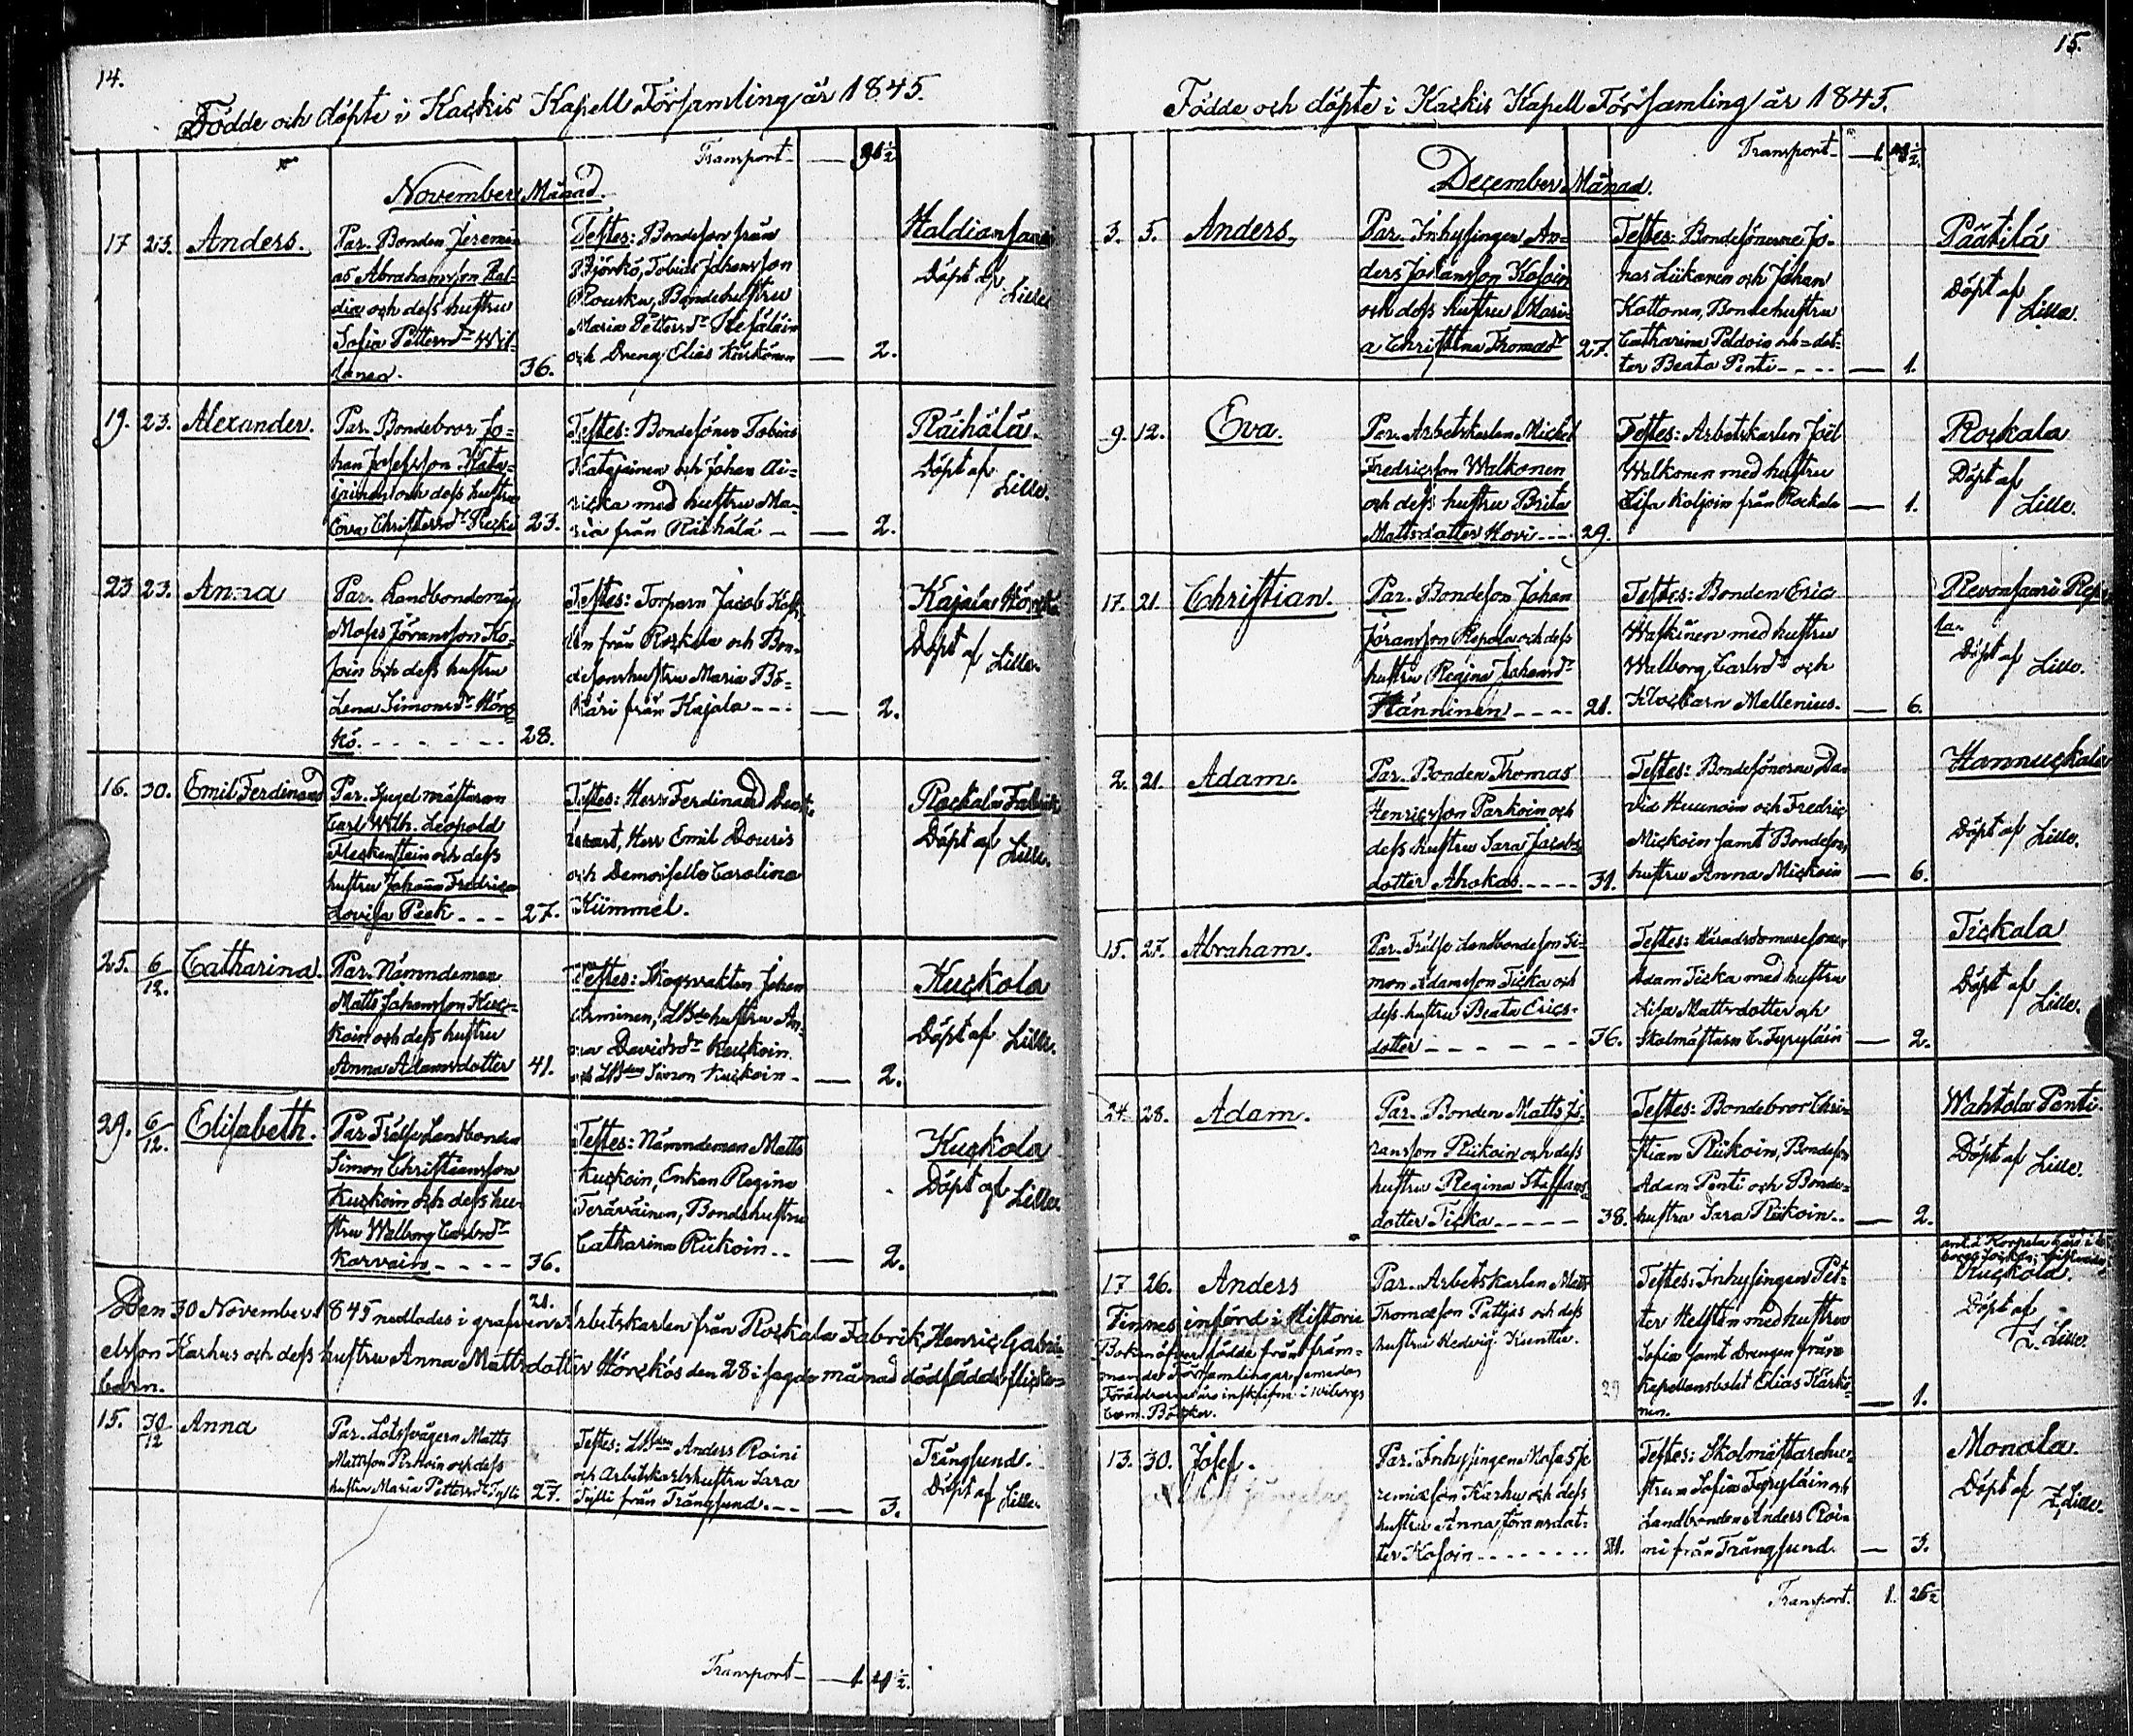 14.
Födde och döpte i Kackis Kapell Församling år 1845.
Transport —
November Månad.
17 23. Anders.
Par. Bonden Jeremi-
as Abrahamsson Hal-
dia och dess hustru
Sofia Pettersdr
36.
Testes: Bondeson från
Björkö, Tobias Johansson
Rouska, Bondehustru
Maria Pettersdr
och Dreng Elias Kärkönen — 2.
Haldiansaari
Döpt af
Lille
19. 23. Alexander.
Par. Bondebror Jo-
han Josefsson Kata-
jainen och dess hustru
Eva Christersdr 23.
Testes: Bondesönen Tobias
Katajainen och Johan
med hustru Ma-
ria från Räihälä — — 2.
Räihälä.
Döpt af
Lille.
23 23. Anna
Par. Landbondemåg
Moses Jöransson Ko-
soin och dess hustru
Lena Simonsdr Hörc-
kö. - - - 28.
Testes: Torparn Jacob
från Rockala och Bon-
desonshustru Maria
från Kajala - - - — 2.
Kajala
Döpt af Lille.
16. 30. Emil Ferdinand
Par. Spegelmästaren
Carl Wilh. Leopold
Fleckenstein och dess
hustru Johana Fredrica
Lovisa Peek - - - 27.
Testes: Herr Ferdinand
Herr Emil Douris
och Demoiselle Carolina
Kümmel.
Rockala Fabrik
Döpt af
Lille.
25. 6/12. Catharina.
Par. Nämndeman
Matts Johansson Kuc-
koin och dess hustru
Anna Adamsdotter 41.
Testes: Skogvakten Johan
hustru An-
na Davidsdr Kuckoin
och Simon Kuckoin - — 2.
Kuckola
Döpt af Lille.
29. 6/12. Elisabeth.
Par. Frälse Landbonden
Simon Christiansson
Kuckoin och dess hu-
stru Walborg Carlsdr
Karvain - - - - 36.
Testes: Nämndeman Matts
Kuckoin, Enkan Regina
Teräväinen, Bondehustru
Catharina Riikoin - - — 2.
Kuckola
Döpt af Lille.
21.
Den 30 November 1845 nedlades i grafven Arbetskarlen från Rockala Fabrik, Henric Gabri-
elsson Karhus och dess hustru Anna Mattsdotter Hörckös den 28 i sagde månad dödfödde flicke-
barn.
15. 30/12 Anna
Par. Lotssvågern Matts
Mattsson och dess
hustru Maria Pettersdr 27.
Testes: Anders Roini
och Arbetskarlshustru Sara
från Trångsund. - - — 3.
Trångsund.
Döpt af Lille.
Transport —
15.
Födde och döpte i Kackis Kapell Församling år 1845.
Transport —
December Månad.
3. 5. Anders.
Par. Inhysingen An-
ders Johansson Kosoin
och dess hustru Mari-
a Christina Thomasdr 27.
Testes: Bondesönerne Jo-
nas Liikanen och Johan
Kottonen, Bondehustru
Catharina och dot-
ter Beata Penti - - - - — 1.
Päätilä
Döpt af
Lille.
9. 12. Eva.
Par. Arbetskarlen Mickel
Fredricsson Walkonen
och dess hustru Brita
Mattsdotter Hovi - - - 29.
Testes: Arbetskarlen Joël
Walkonen med hustru
Lisa Koljoin från Rockala — 1.
Rockala
Döpt af
Lille.
17. 21. Christian.
Par. Bondeson Johan
Jöransson Repola och dess
hustru Regina Johansdr
Hänninen - - - - 21.
Testes: Bonden Eric
med hustru
Walborg Carlsdr och
Klockarn Mellenius. — 6.
Revonsaari Repo-
la.
Döpt af
Lille.
2. 21. Adam.
Par. Bonden Thomas
Henricsson Parkoin och
dess hustru Sara Jacobs-
dotter Ahokas - - - - 31.
Testes: Bondesönerne Da-
vid och Fredric
Mickoin samt Bondesons
hustru Anna Mickoin — 6.
Hannuckala
Döpt af Lille.
15. 27. Abraham.
Par. Frälse Landbondeson Si-
mon Adamsson Ticka och
dess hustru Beata Erics-
dotter - - - - - - 36.
Testes: Häradsdomaresonen
Adam Ticka med hustru
Lisa Mattsdotter och
Skolmästarn C. Fyryläin — 2.
Tickala
Döpt af
Lille.
24. 28. Adam.
Par. Bonden Matts Jö-
ransson Riikoin och dess
hustru Regina Staffans-
dotter Ticka - - - - - 38.
Testes: Bondebror Chri-
stian Riikoin, Bondeson
Adam Penti och Bonde-
hustru Sara Riikoin.. — 2.
Wahtola Penti.
Döpt af Lille.
17 26. Anders
Finnes införd i Historie
Boken öfver födde från främ-
mande Församlingar, emedan
Föräldrarne äro inskrifne i Wiborgs
Böcker.
Par. Arbetskarlen Matts
Thomasson och dess
hustru Hedvig Kunttu.
29
Testes: Inhysingen Pet-
ter Hellstén med hustru
Sofia samt Drengen från
Kapellansbolet Elias Kärkö-
nen. — 1.
Kuckola.
Döpt af
Z. Lille.
13. 30. Josef.
Par. Inhysingen Moses Je-
remiasson Karhu och dess
hustru Anna Jöransdot-
ter Kosoin - - - - - - - 21.
Testes: Skolmästarehu-
strun Sofia Fyryläin och
Landbonden Anders Roi-
ni från Trångsund. — 3.
Monola.
Döpt af Z. Lille.
Transport. 1. 26½